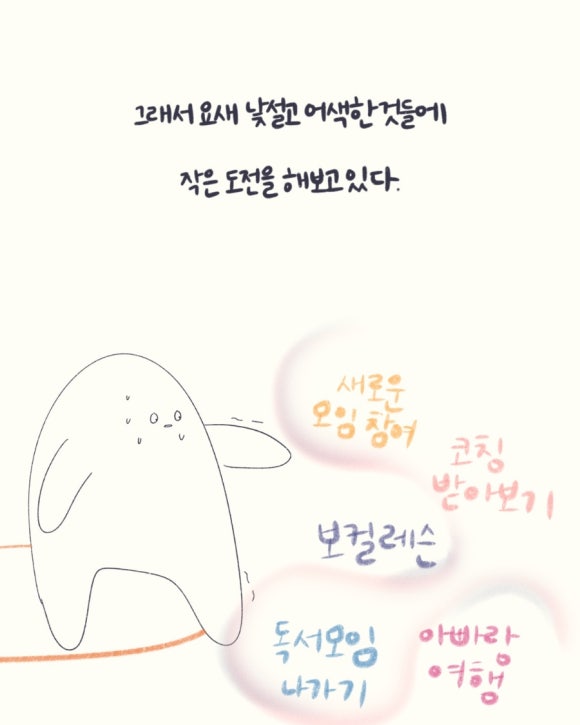 그래서 요새 낯설고 어색한 것들에
작은 도전을 해보고 있다.
새로운
모임 참여
코칭
받아보기
보컬레슨
독서모임
나가기
아빠랑
여행